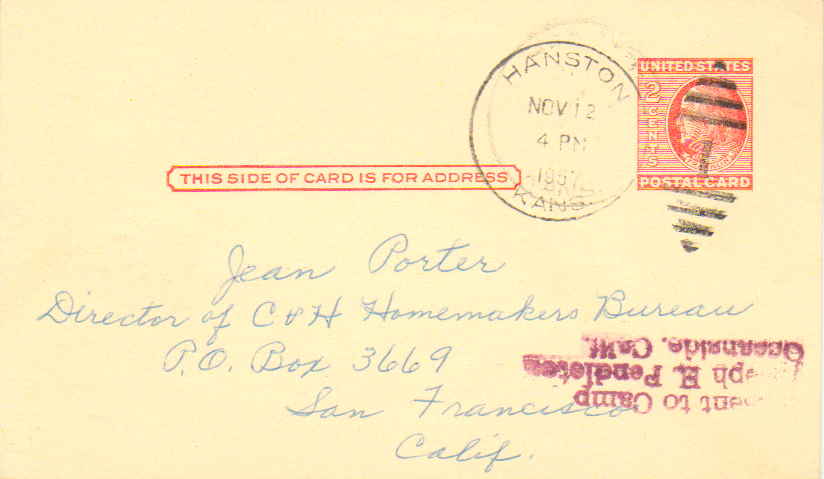 HANSTON
NOV 12
4 PM
1957
KANS
UNITED STATES
2 CENTS
POSTAL CARD
THIS SIDE OF CARD IS FOR ADDRESS
Jean Porter
Director of C & H Homemakers Bureau
P.O. Box 3669
San Francisco
Calif.
ent to Camp
eph H. Pendleton
Oceanside, Calif.